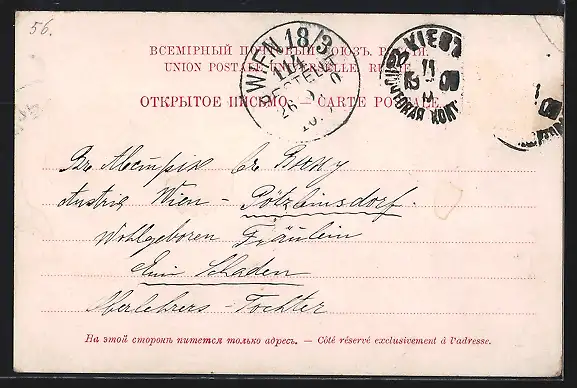 56.
ВСЕМІРНЫЙ ПОЧТОВЫЙ СОЮЗЪ. РОССІЯ.
UNION POSTALE UNIVERSELLE. RUSSIE.
ОТКРЫТОЕ ПИСЬМО. — CARTE POSTALE.
WIEN 18/3
BESTELLT
КІЕВЪ
ПОЧТОВАЯ КОНТ
Въ Австрію въ Вѣну
Austria Wien - Pötzleinsdorf.
Wohlgeboren Fräulein
Schaden
Oberlehrers - Tochter
На этой сторонѣ пишется только адресъ. — Côté réservé exclusivement à l'adresse.